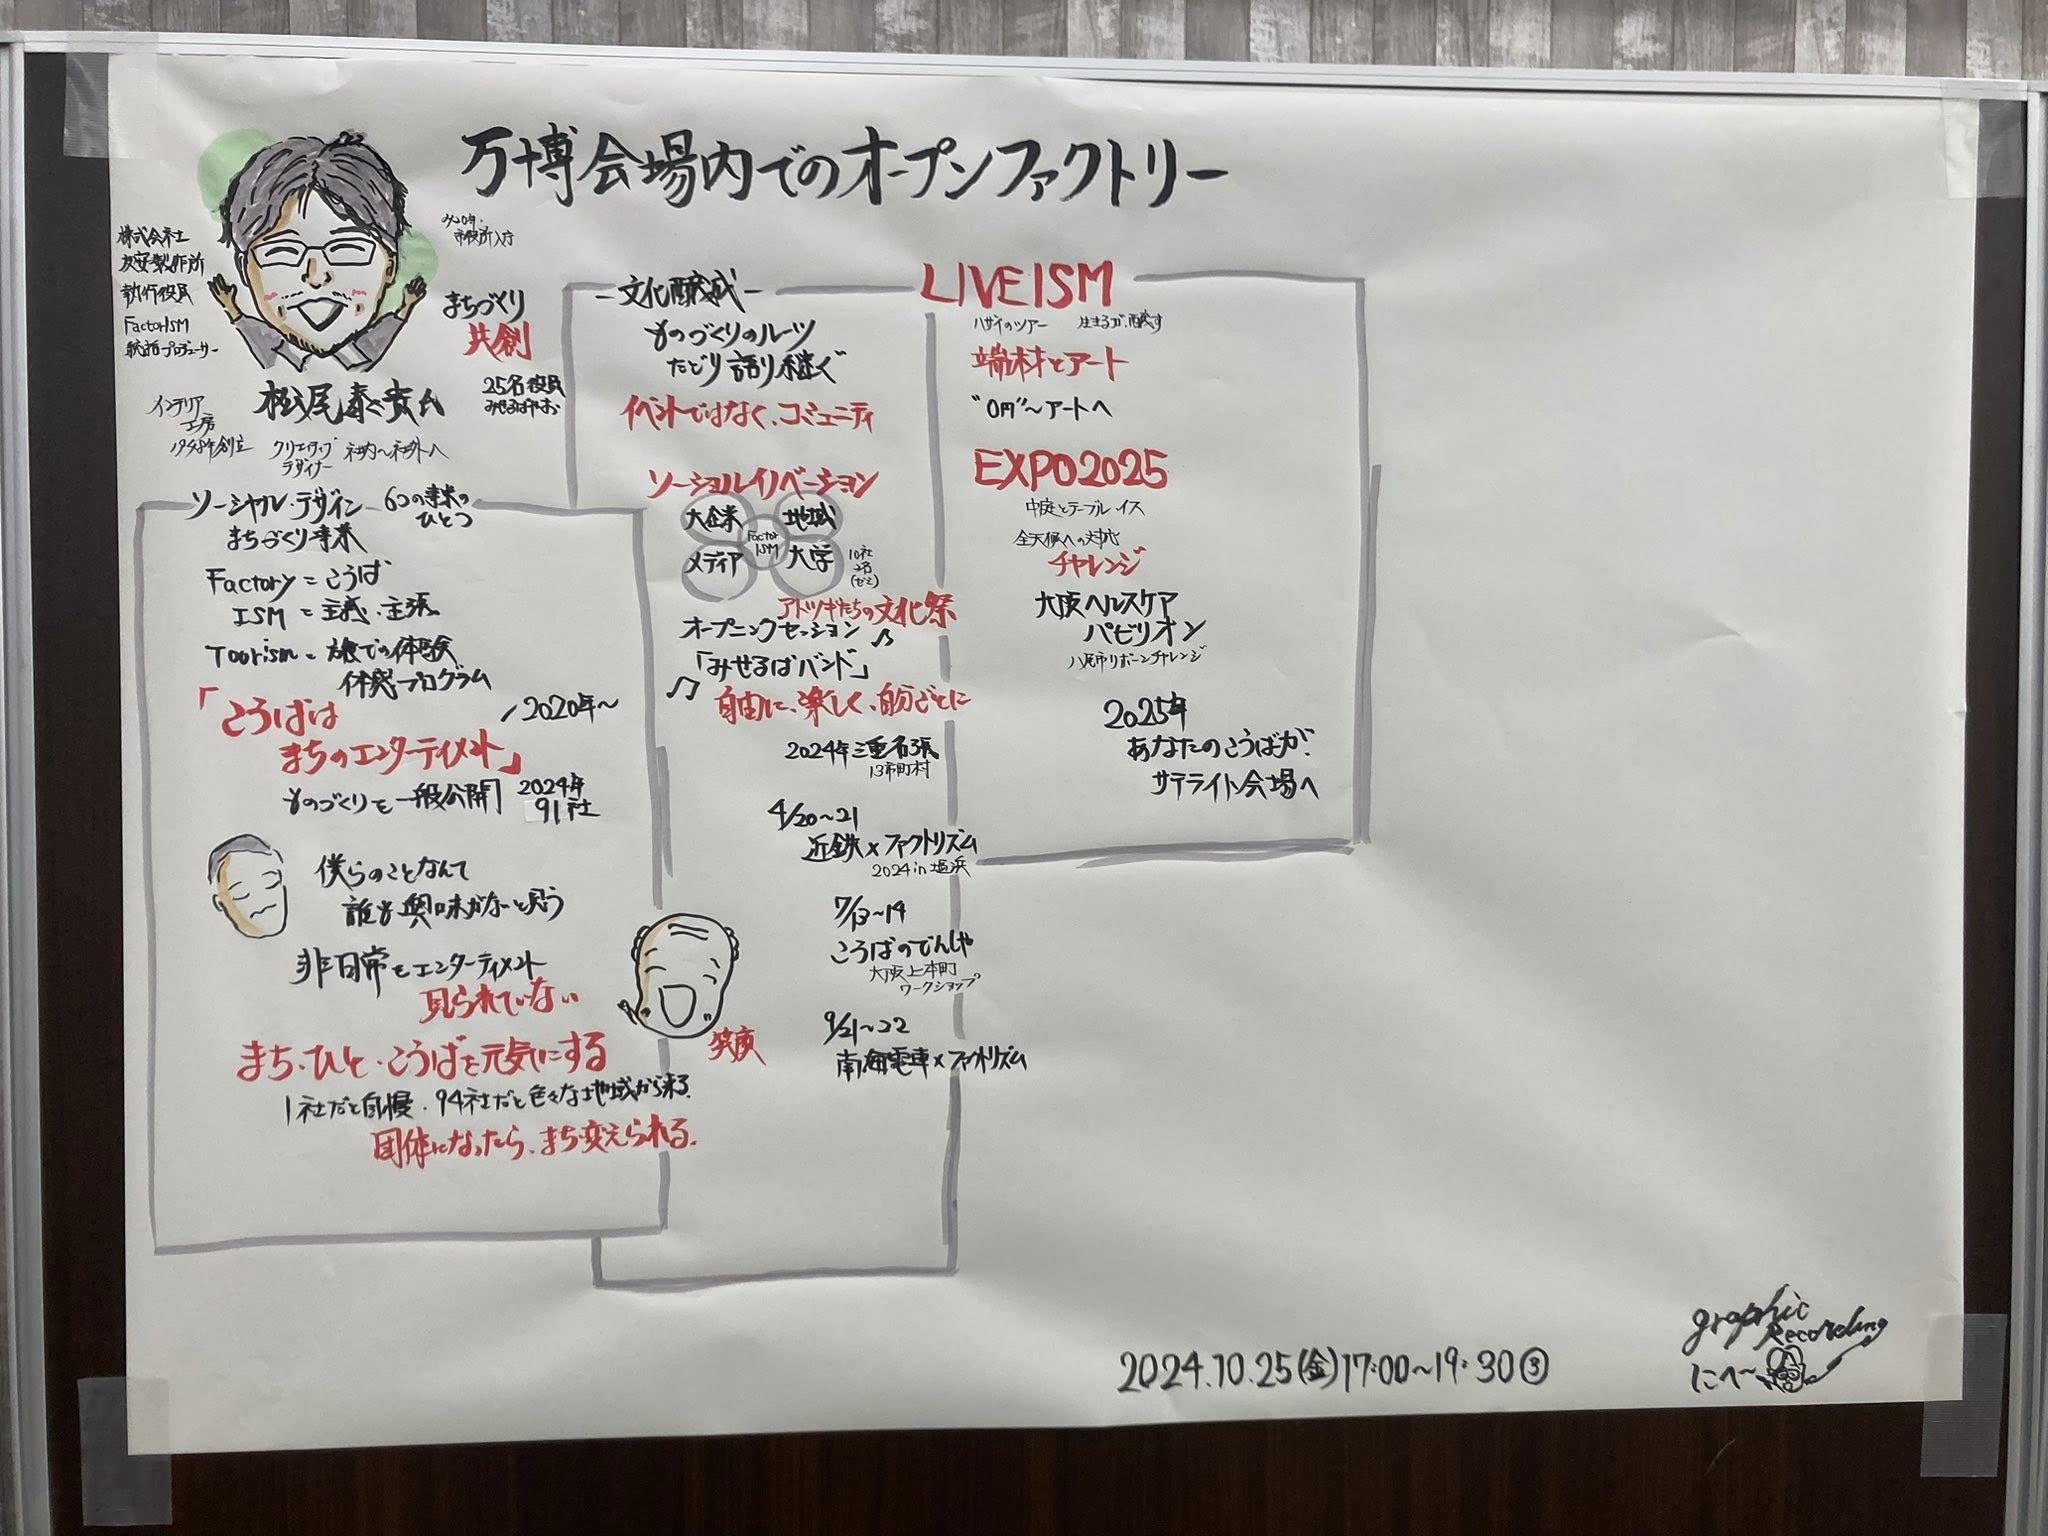 万博会場内でのオープンファクトリー
株式会社
友安製作所
執行役員
FactorISM
統括プロデューサー
市役所入庁
まちづくり
共創
25名役員
みせるばやお
松尾泰貴氏
インテリア
工房
1948年創立
クリエイティブ
デザイナー
社内〜社外へ
ソーシャル・デザイン
6つの事業の
ひとつ
まちづくり事業
Factory=こうば
ISM=主義・主張
Toorism=旅での体験
体験プログラム
「こうばは
まちのエンターテイメント」
2020年〜
ものづくりを一般公開
2024年
91社
僕らのことなんて
誰も興味がないと思う
非日常もエンターテイメント
見られていない
まち・ひと・こうばを元気にする
1社だと自慢・94社だと色々な地域から来る
団体になったら、まち変えられる。
笑顔
-文化醸成-
ものづくりのルーツ
たどり語り継ぐ
イベントではなく、コミュニティ
ソーシャルイノベーション
大企業
地域
Factor
ISM
メディア
大学
10社
2名
(ゼミ)
アトツギたちの文化祭
オープニングセッション
「みせるばバンド」
自由に、楽しく、自分ごとに
2024年三重名張
13市町村
4/20〜21
近鉄×ファクトリズム
2024 in 塩浜
7/13〜14
こうばのでんしゃ
大阪上本町
ワークショップ
9/21〜22
南海電車×ファクトリズム
LIVE ISM
ハザイのツアー
端材とアート
"0円"〜アートへ
EXPO2025
中庭とテーブル・イス
全天候への対応
チャレンジ
大阪ヘルスケア
パビリオン
八尾市リボーンチャレンジ
2025年
あなたのこうばが、
サテライト会場へ
2024.10.25(金)17:00〜19:30③
graphic
Recording
にへ〜